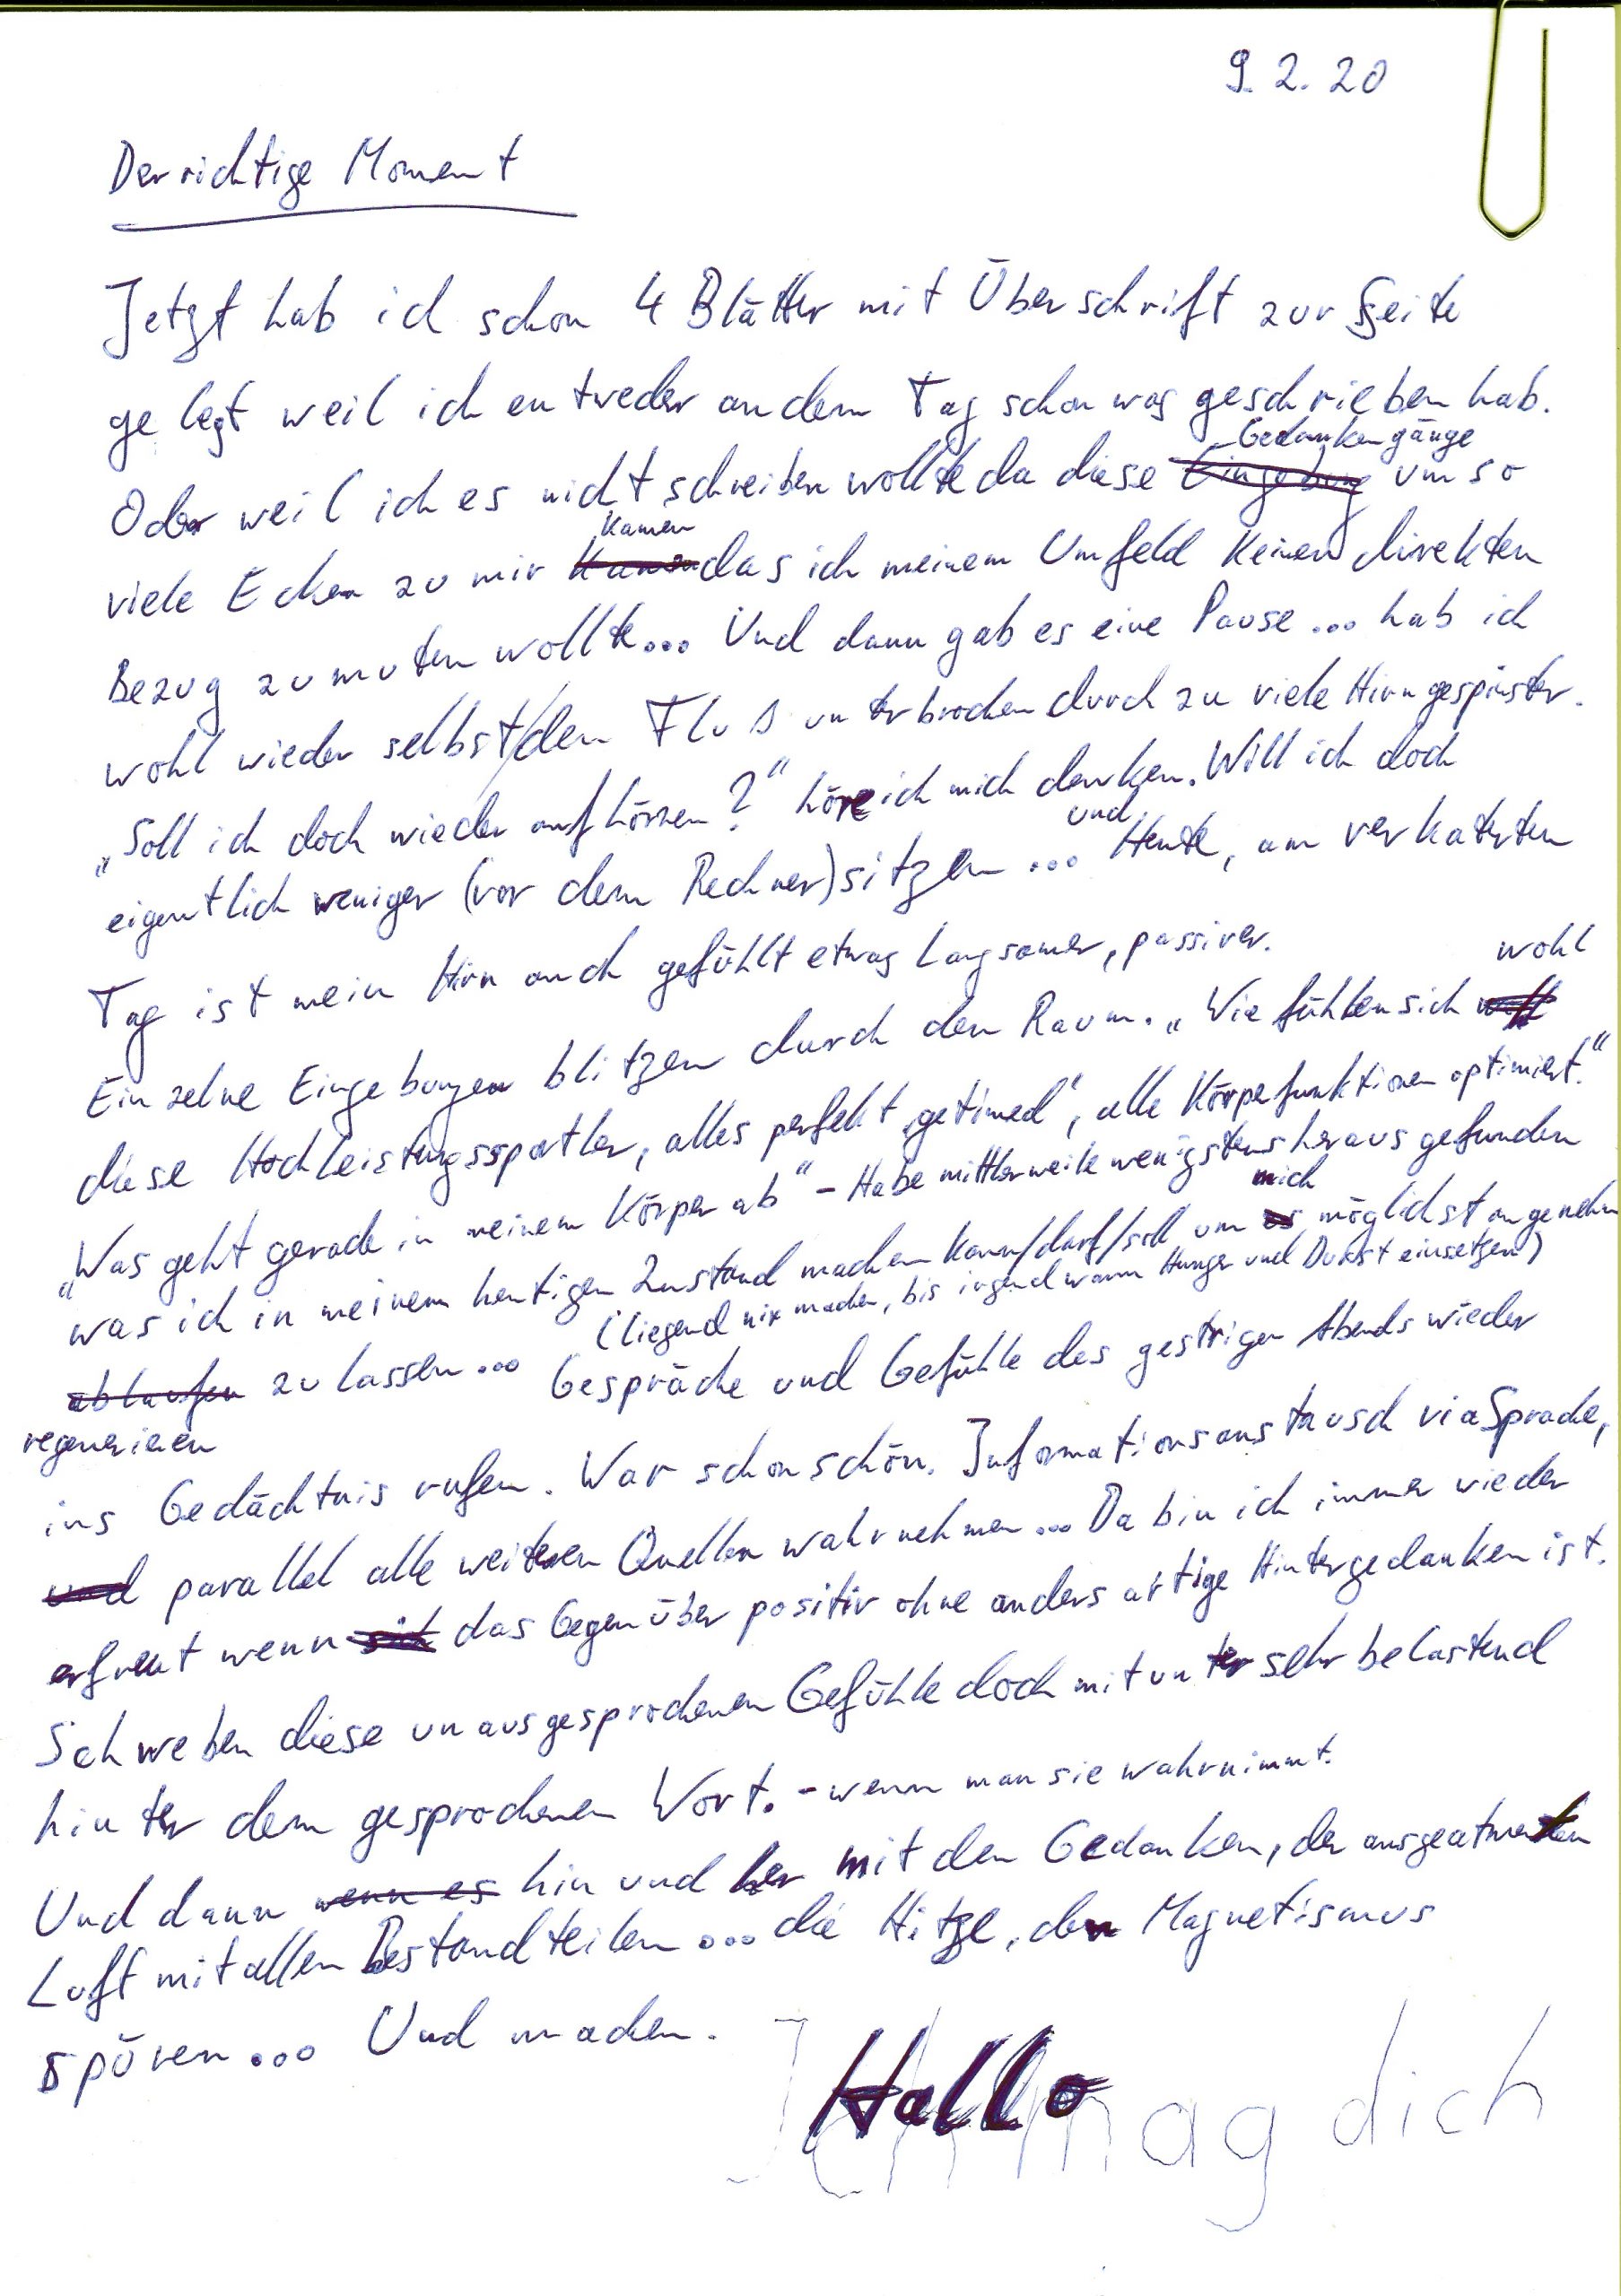 9.2.20
Der richtige Moment
Jetzt hab ich schon 4 Blätter mit Überschrift zur Seite
gelegt weil ich entweder an dem Tag schon was geschrieben hab.
Gedankengänge
Oder weil ich es nicht schreiben wollte da diese Eingebung um so
kamen
viele Ecken zu mir kamen das ich meinem Umfeld keinen direkten
Bezug zumuten wollte... Und dann gab es eine Pause... hab ich
wohl wieder selbst/den Fluß unterbrochen durch zu viele Hirngespinster.
„Soll ich doch wieder aufhören?“ höre ich mich denken. Will ich doch
und
eigentlich weniger (vor dem Rechner) sitzen ... Heute, am verkaterten
Tag ist mein Hirn auch gefühlt etwas langsamer, passiver.
wohl
Einzelne Eingebungen blitzen durch den Raum. „Wie fühlen sich
diese Hochleistungssportler, alles perfekt „getimed“, alle Körperfunktionen optimiert.“
„Was geht gerade in meinem Körper ab“ - Habe mittlerweile wenigstens herausgefunden
mich
was ich in meinem heutigen Zustand machen kann/darf/soll um es möglichst angenehm
(liegend nix machen, bis irgendwann Hunger und Durst einsetzen)
ablaufen zu lassen... Gespräche und Gefühle des gestrigen Abends wieder
regenerieren
ins Gedächtnis rufen. War schon schön. Informationsaustausch via Sprache,
und parallel alle weiteren Quellen wahrnehmen... Da bin ich immer wieder
erfreut wenn sich das Gegenüber positiv ohne andersartige Hintergedanken ist.
Schweben diese unausgesprochenen Gefühle doch mitunter sehr belastend
hinter dem gesprochenen Wort. - wenn man sie wahrnimmt.
Und dann wenn es hin und her mit den Gedanken, der ausgeatmeten
Luft mit allen Bestandteilen... die Hitze, den Magnetismus
spüren... Und machen.
Hallo
Ich mag dich